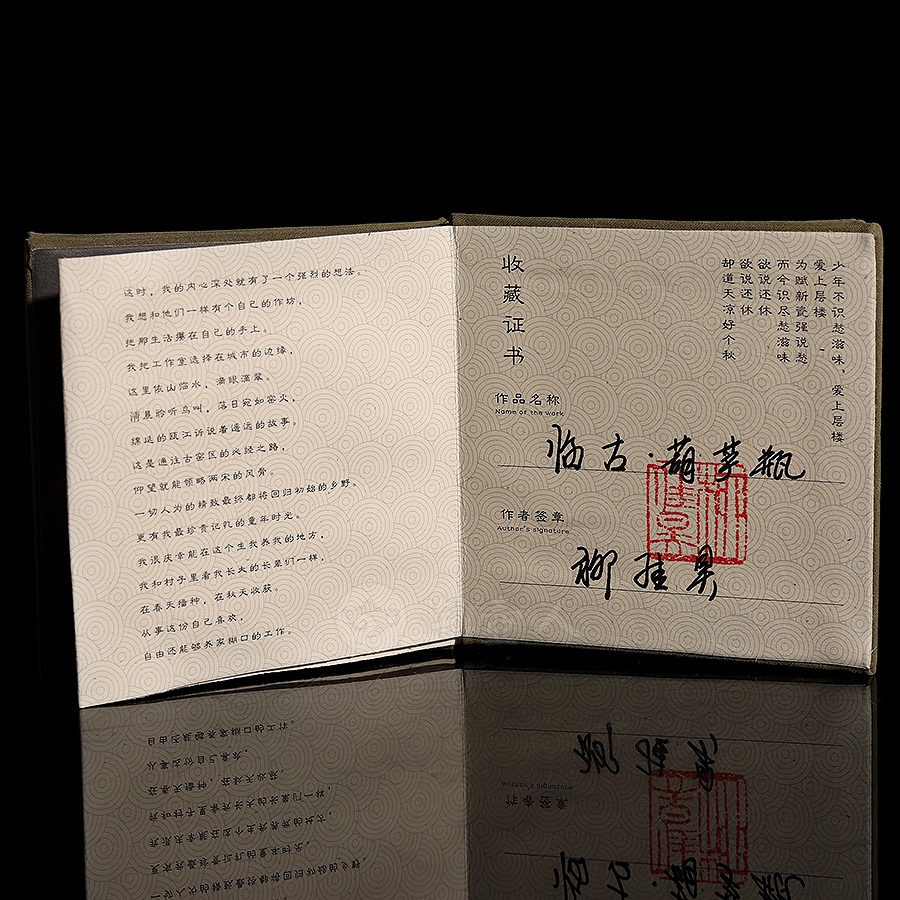 这时，我的内心深处就有了一个强烈的想法。
我想和他们一样有个自己的作坊，
把那生活攥在自己的手上。
我把工作室选择在城市的边缘，
这里依山临水，满眼滴翠。
清晨聆听鸟叫，落日宛如窑火，
绵延的瓯江诉说着遥远的故事。
这是通往古窑区的必经之路，
仰望就能领略两宋的风骨。
一切人为的精致最终都将回归初始的乡野。
更有我最珍贵记忆的童年时光。
我很庆幸能在这个生我养我的地方，
我和村子里看我长大的长辈们一样，
在春天播种，在秋天收获。
从事这份自己喜欢，
自由还能够养家糊口的工作。
少年不识愁滋味，爱上层楼
爱上层楼
为赋新瓷强说愁
而今识尽愁滋味
欲说还休
欲说还休
却道天凉好个秋
收藏证书
作品名称
Name of the work
临古·葫芦瓶
作者签章
Author's signature